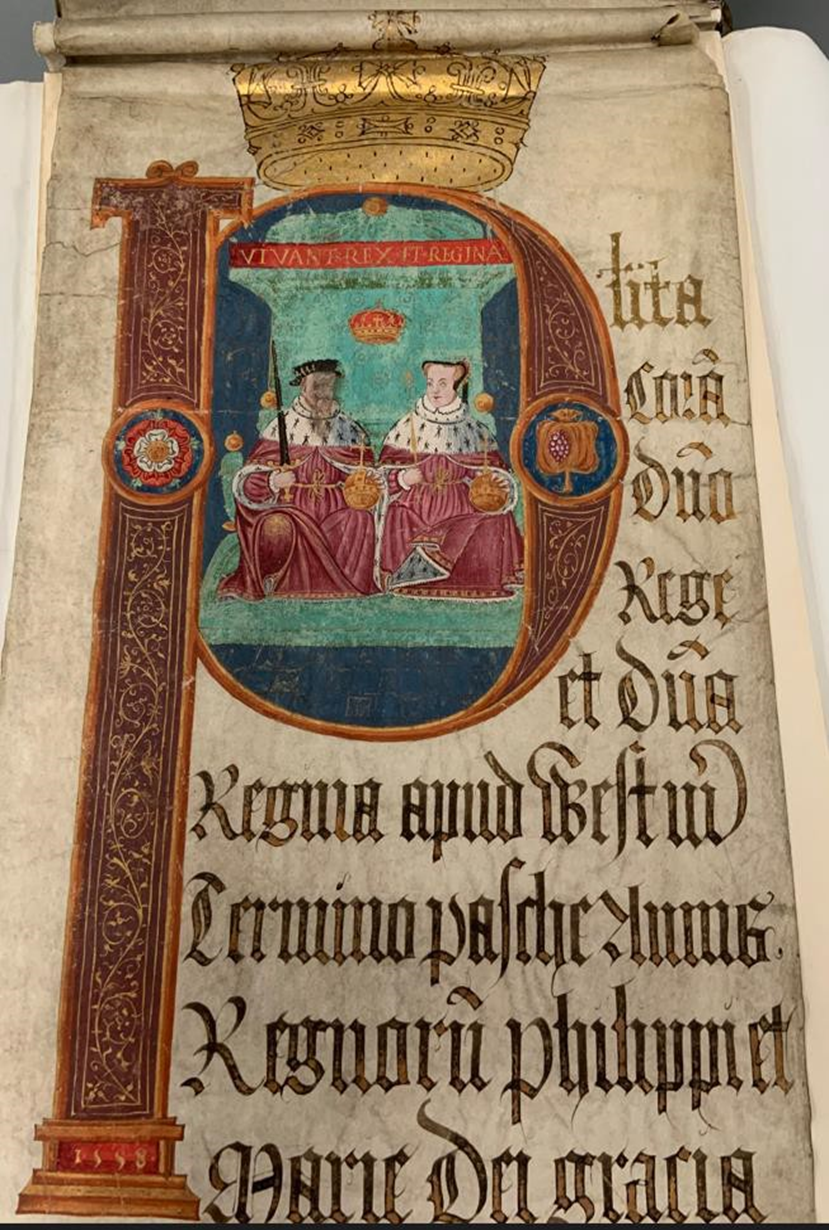 VIVANT REX ET REGINA
Plita
Corā
Dño
Rege
et Dña
Regina apud Westm̄
Termino pasche Annis
Regnorū Philippi et
Marie Dei gracia
1558